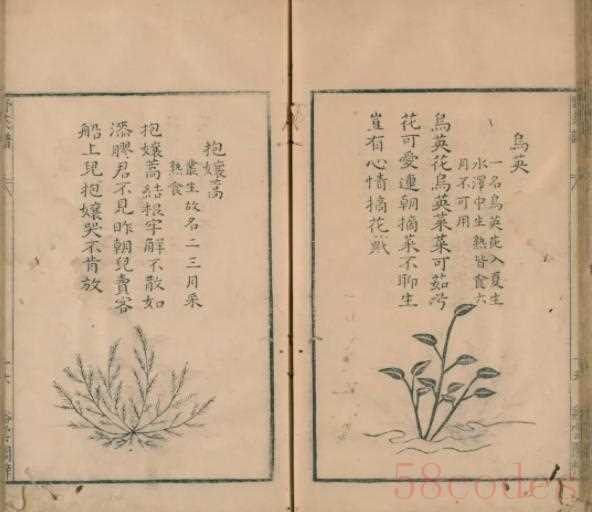 烏英
一名烏英花入夏生
水澤中生熟皆食六
月不可用
烏英花烏英菜菜可茹兮
花可愛連朝摘菜不聊生
豈有心情摘花戴
抱孃蒿
叢生故名二三月采
熟食
抱孃蒿結根牢解不散如
漆膠君不見昨朝兒賣客
船上兒抱孃哭不肯放
58codes